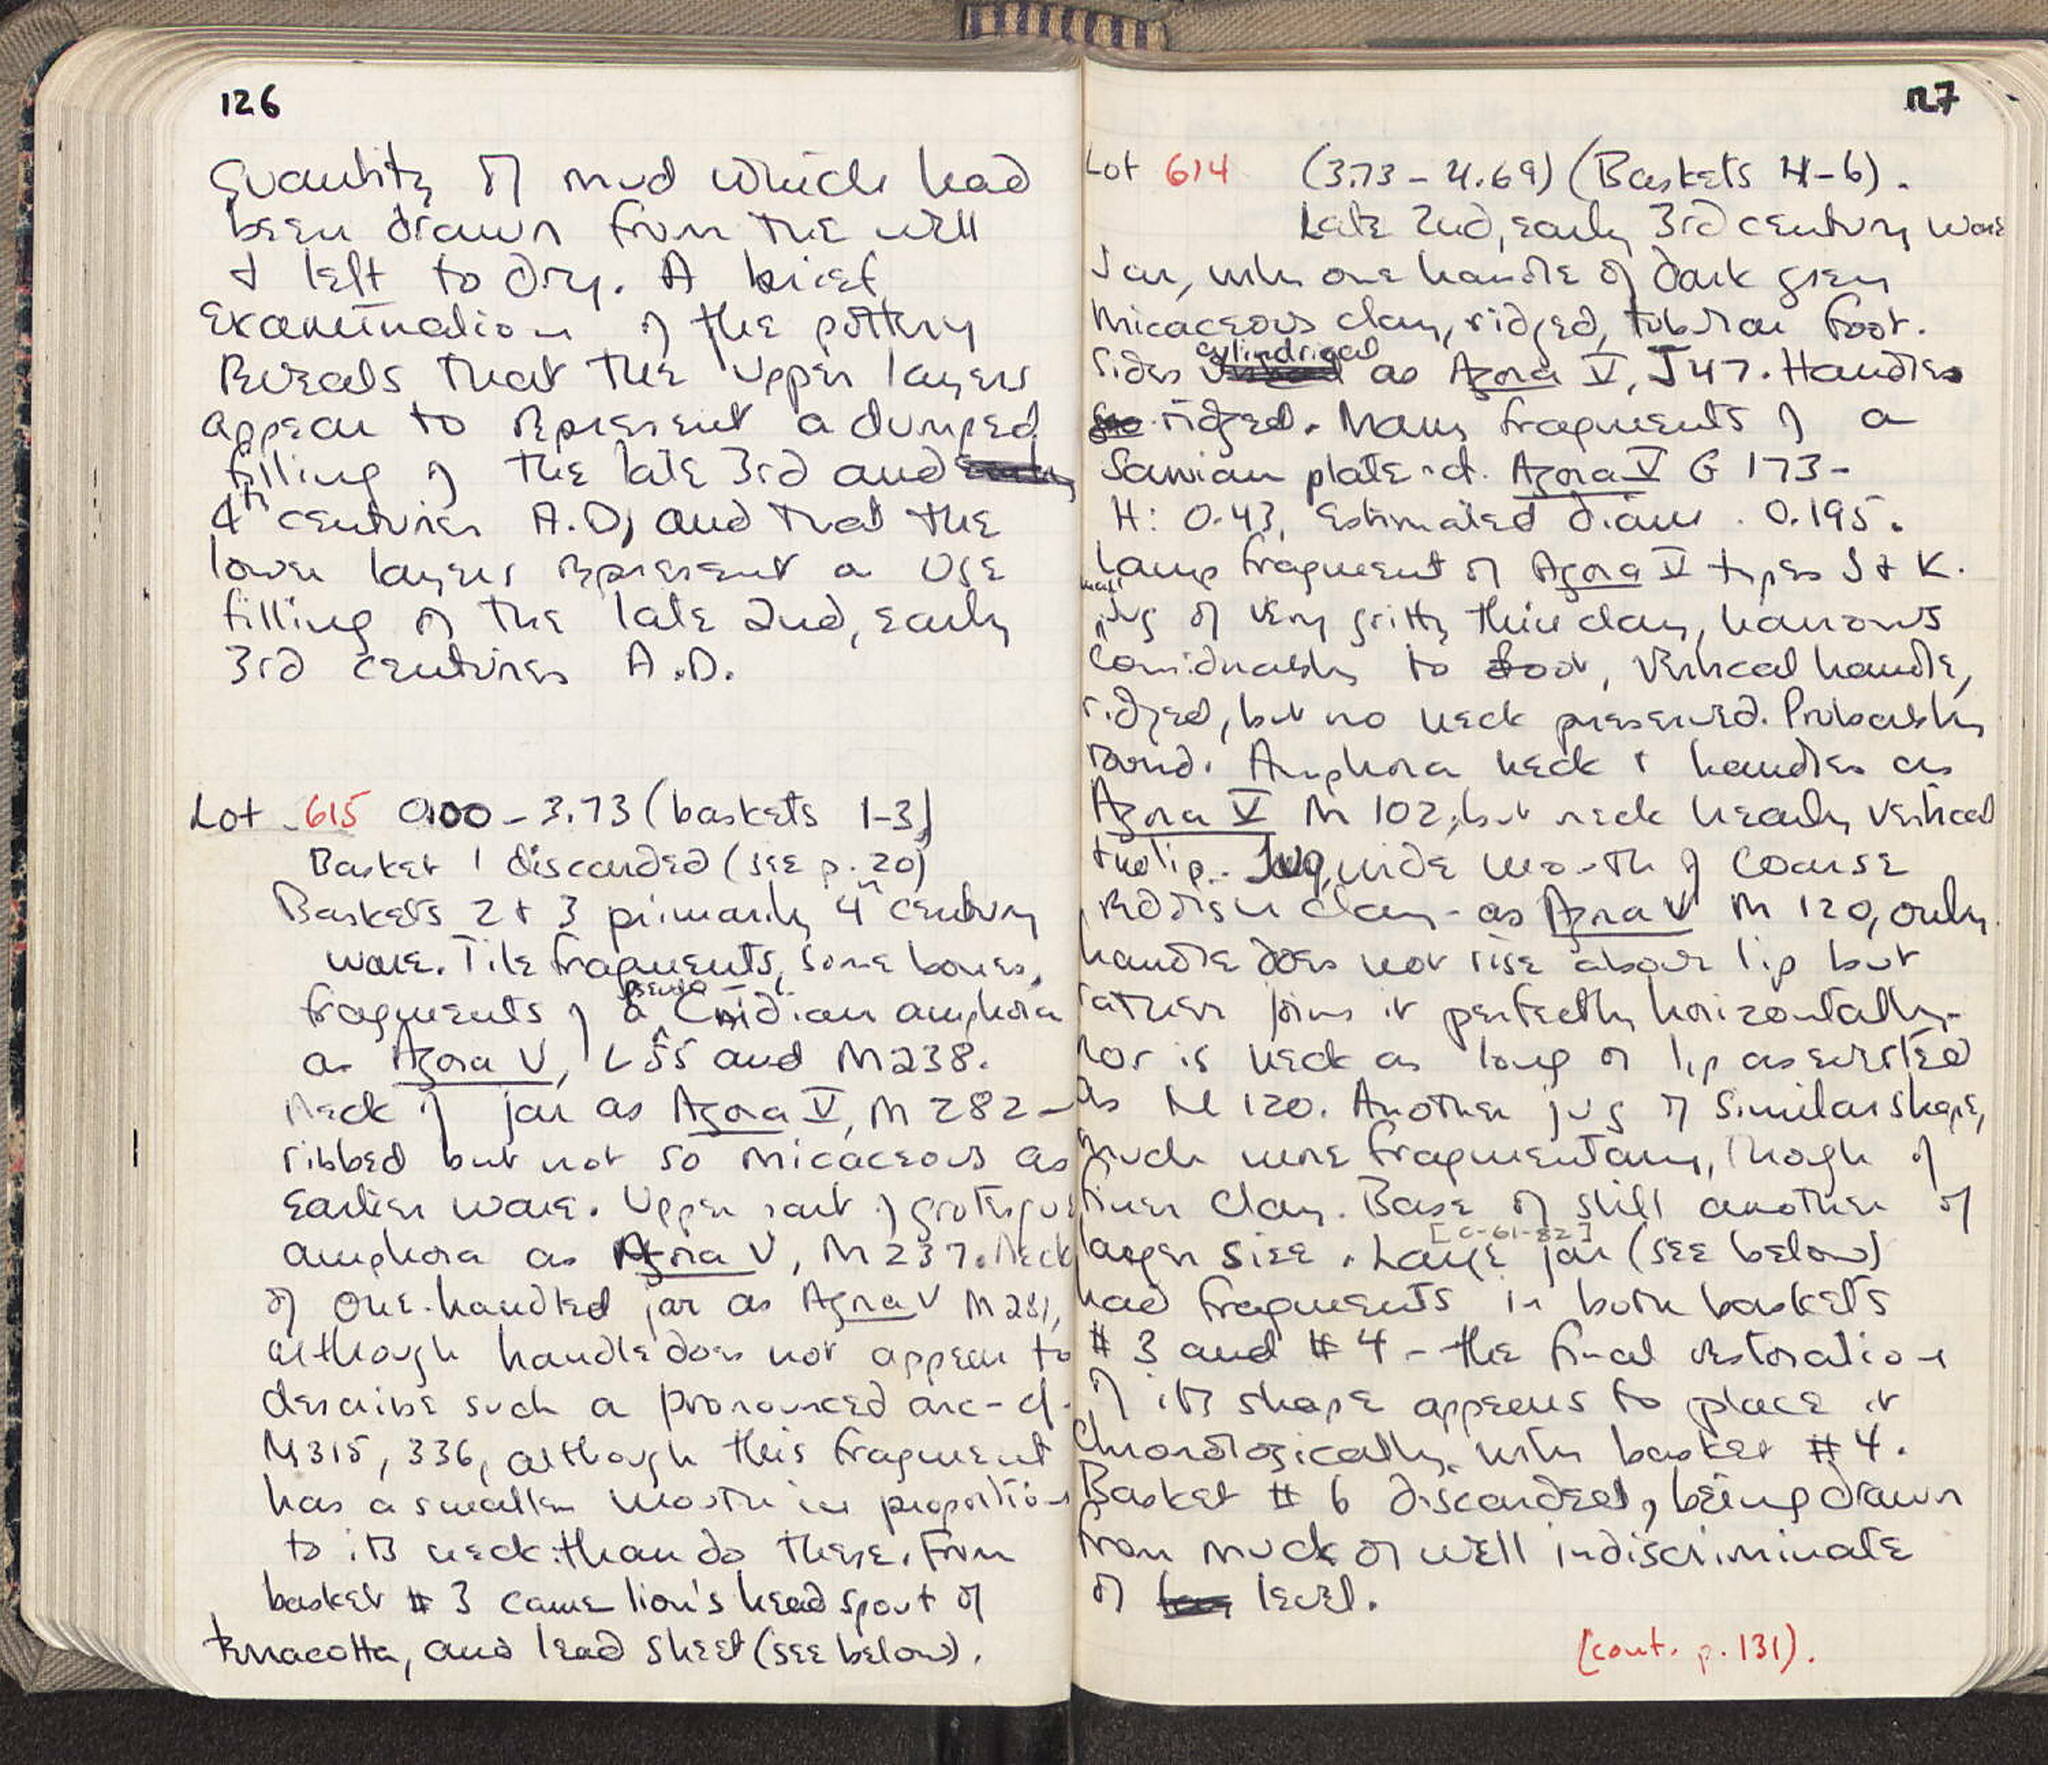 126
Quantity of mud which had
been drawn from the well
& left to dry. A brief
examination of the pottery
reveals that the upper layers
appear to represent a dumped
filling of the late 3rd and early
4th centuries A.D, and that the
lower layers represent a use
filling of the late 2nd, early
3rd centuries A.D.
Lot 615 0.00 - 3.73 (baskets 1-3)
Basket 1 discarded (see p. 20)
Baskets 2 + 3 primarily 4th century
ware. Tile fragments, some bones,
pseudo -
fragments of a Cnidian amphora
as Agora V, L 55 and M 238.
Neck of jar as Agora V, M 282 -
ribbed but not so micaceous as
earlier ware. Upper part of grotesque
amphora as Agora V, M 237. Neck
of one-handled jar as Agora V M 281,
although handle does not appear to
describe such a pronounced arc - cf.
M 315, 336, although this fragment
has a smaller mouth in proportion
to its neck than do these. From
basket # 3 came lion's head spout of
terracotta, and lead sheet (see below).
127
Lot 614 (3.73 - 4.69) (Baskets 4-6).
Late 2nd, early 3rd century ware
Jar, with one handle of dark grey
micaceous clay, ridged, tubular foot.
cylindrical
Sides as Agora V, J 47. Handles
ridged. Many fragments of a
Samian plate - cf. Agora V G 173 -
H: 0.43, Estimated diam. 0.195.
Lamp fragment of Agora V types J & K.
Jug of very gritty thick clay, narrows
considerably to foot, vertical handle,
ridged, but no neck preserved. Probably
round. Amphora neck + handles as
Agora V M 102, but neck nearly vertical
to lip. Jug, wide mouth of coarse
reddish clay - as Agora V M 120, only
handle does not rise above lip but
rather joins it perfectly horizontally -
nor is neck as long or lip as everted
as M 120. Another jug of similar shape,
much more fragmentary, though of
finer clay. Base of still another of
[C-61-82]
larger size. Large jar (see below)
had fragments in both baskets
# 3 and # 4 - the final restoration
of its shape appears to place it
chronologically with basket # 4.
Basket # 6 discarded, being drawn
from muck of well indiscriminate
of level.
(cont. p. 131).